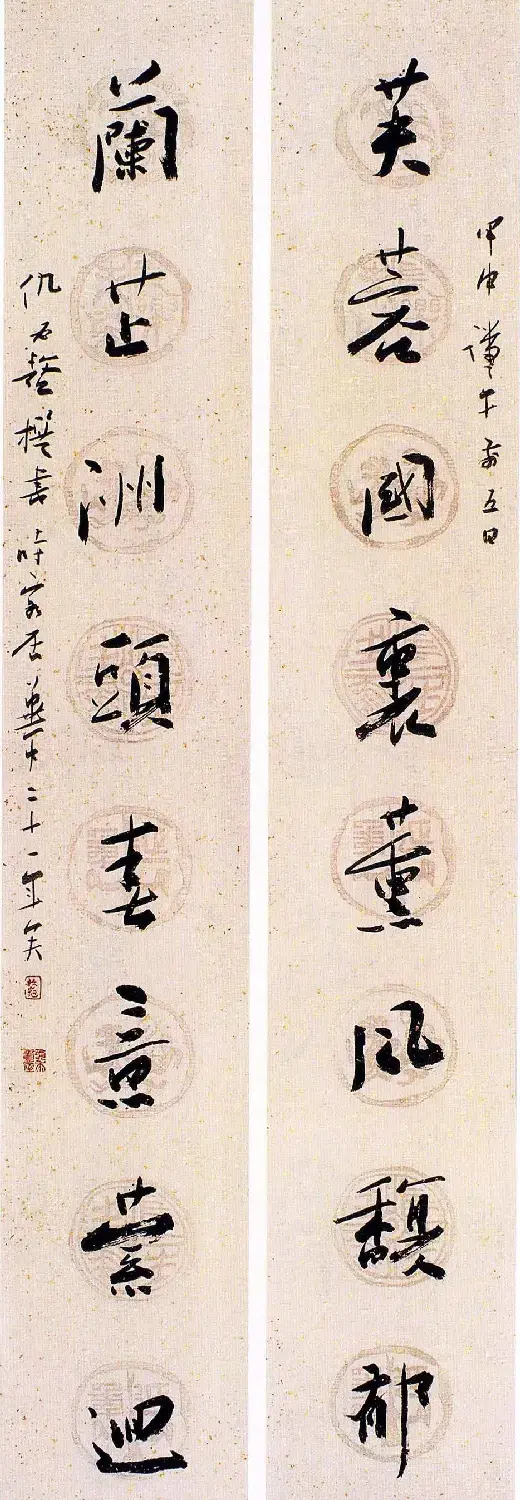 甲申端午前五日
芙蓉國裏薰風馥郁
蘭芷洲頭春意萦迴
仇撰書時客居華中二十一年矣